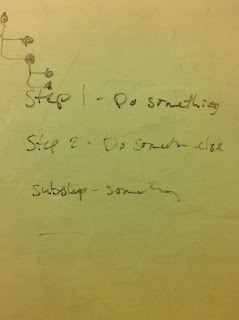 Step 1 - Do something
Step 2 - Do somethn else
substep - something